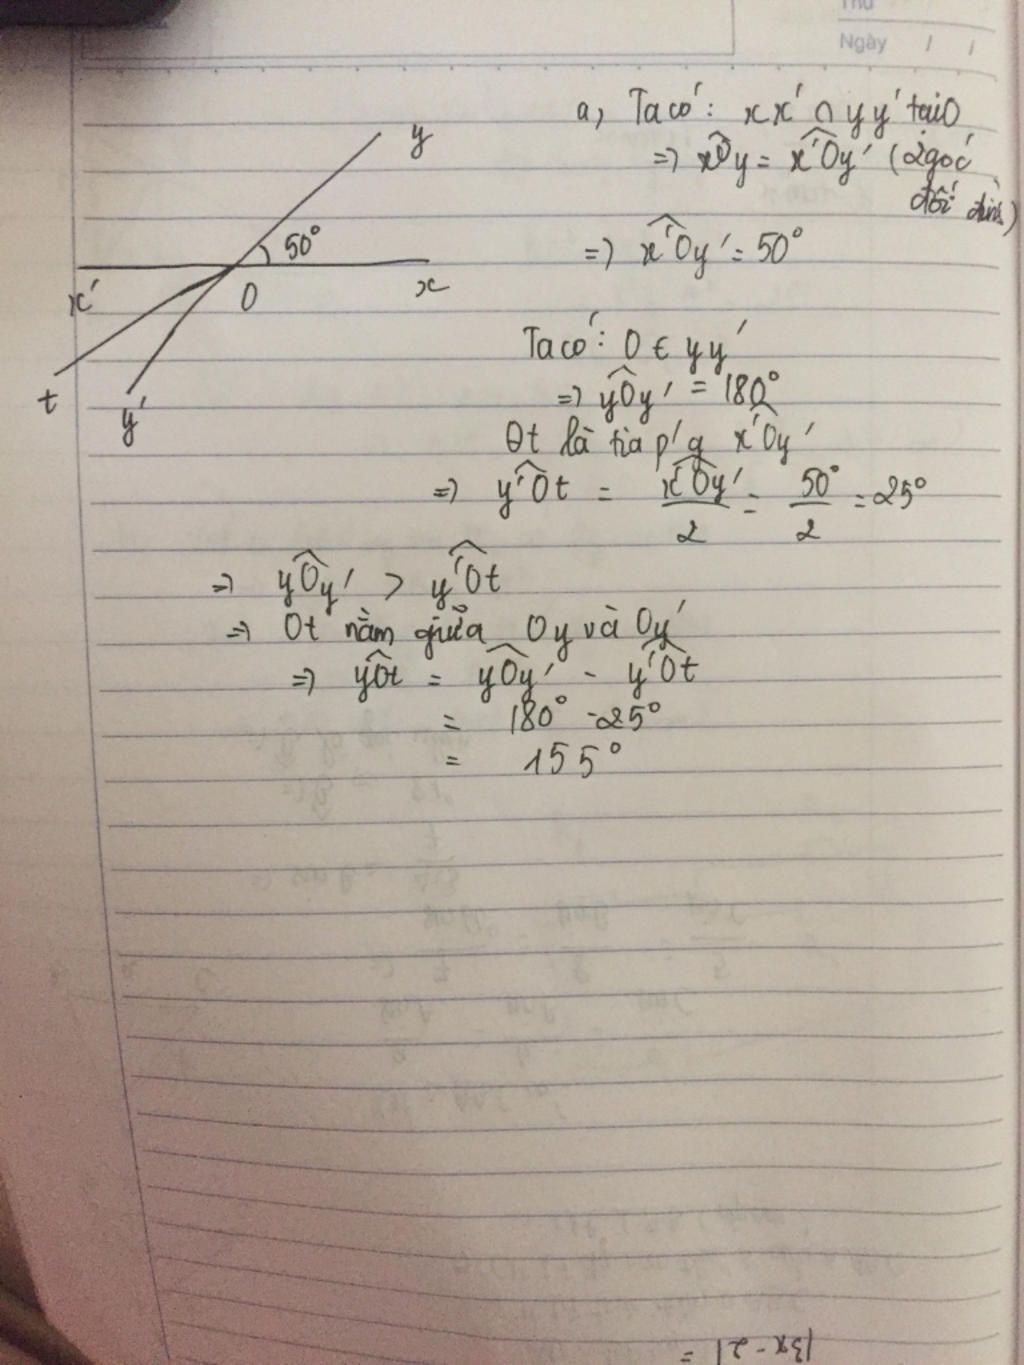 Thứ
Ngày / /
a, Ta có: xx' ∩ yy' tại O
=> xOy = x'Oy' (2 góc
đối đỉnh)
=> x'Oy' = 50°
y
50°
x'
O
x
t
y'
Ta có: O ∈ yy'
=> yOy' = 180°
Ot là tia p'g x'Oy'
=> y'Ot = x'Oy'/2 = 50°/2 = 25°
=> yOy' > y'Ot
=> Ot nằm giữa Oy và Oy'
=> yOt = yOy' - y'Ot
= 180° - 25°
= 155°
|3x - 2| =